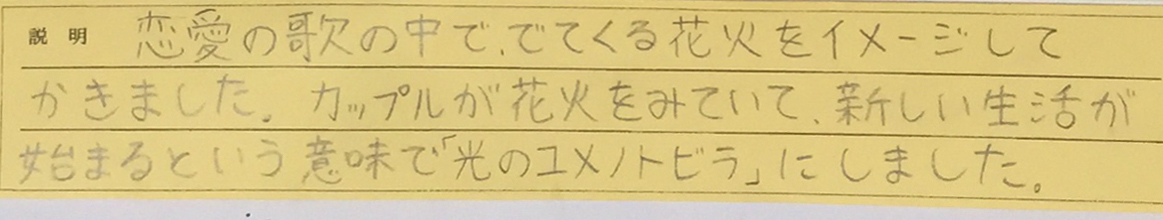 説明 恋愛の歌の中で、でてくる花火をイメージして
かきました。カップルが花火をみていて、新しい生活が
始まるという意味で「光のユメノトビラ」にしました。